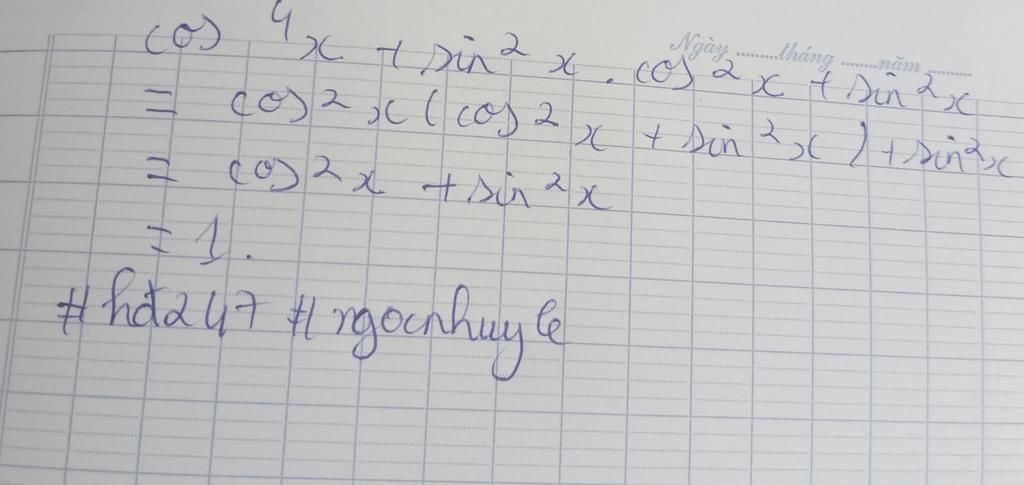 Ngày ........tháng ........năm ..........
cos⁴x + sin²x . cos²x + sin²x
= cos²x (cos²x + sin²x) + sin²x
= cos²x + sin²x
= 1.
#hđ247 #ngocnhuyle